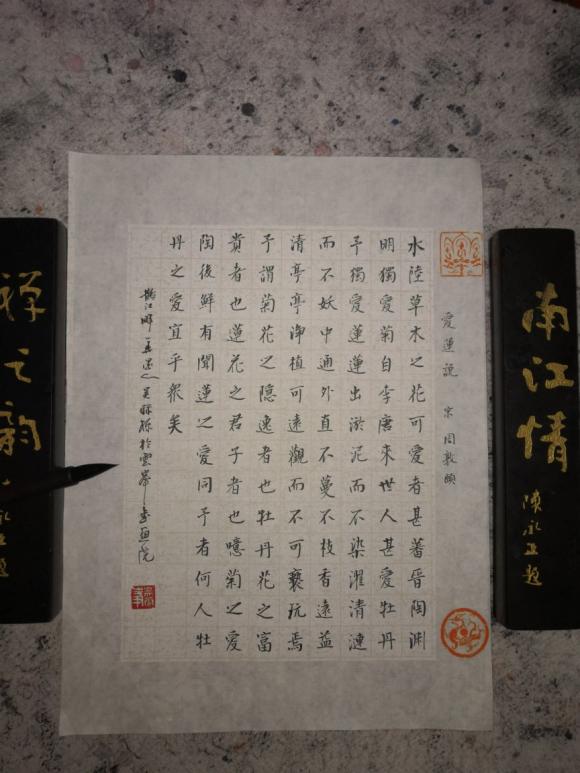 南江情
陳永正题
愛蓮說 宋 周敦頤
水陸草木之花可愛者甚蕃晉陶渊
明獨愛菊自李唐來世人甚愛牡丹
予獨愛蓮蓮出淤泥而不染濯清漣
而不妖中通外直不蔓不枝香遠益
清亭亭淨植可遠觀而不可褻玩焉
予謂菊花之隱逸者也牡丹花之富
貴者也蓮花之君子者也噫菊之愛
陶後鮮有聞蓮之愛同予者何人牡
丹之愛宜乎衆矣
於雲峯書画院
禅之韵
永正题